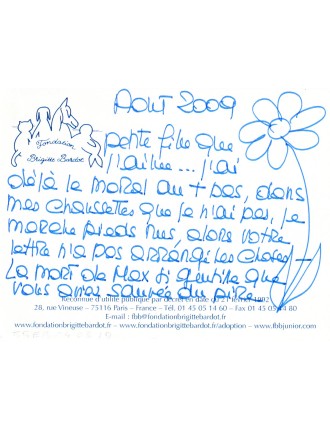 Août 2009
Fondation
Brigitte Bardot
petite fille que
j'aime... j'ai
déjà le moral au + bas, dans
mes chaussettes que je n'ai pas, je
marche pieds nus, alors votre
lettre n'a pas arrangé les choses –
La mort de Max si gentille que
vous avez sauvée du pire
Reconnue d'utilité publique par décret en date du 21 février 1992
28, rue Vineuse – 75116 Paris – France – Tél. 01 45 05 14 60 – Fax 01 45 05 14 80
E-mail : fbb@fondationbrigittebardot.fr
www.fondationbrigittebardot.fr – www.fondationbrigittebardot.fr/adoption – www.fbbjunior.com